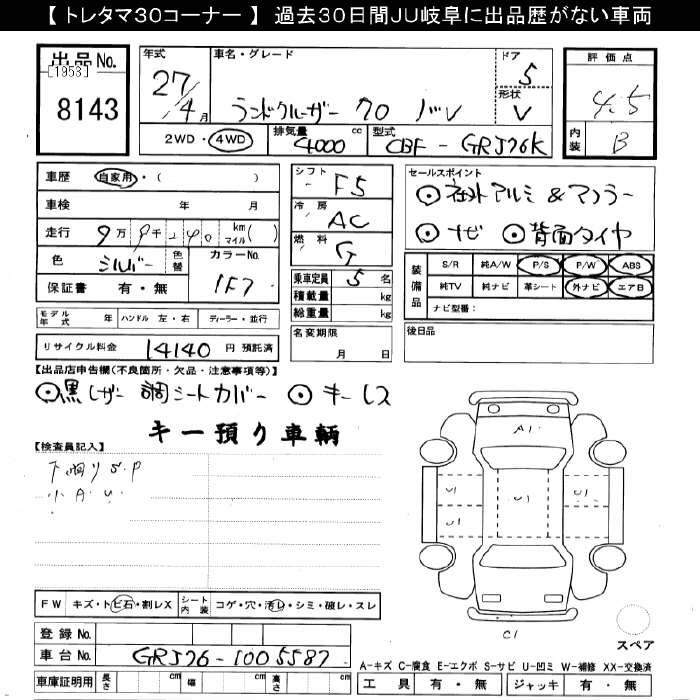 【 トレタマ30コーナー 】 過去30日間JU岐阜に出品歴がない車両
出品No.
[1953]
8143
年式 27/4月
車名・グレード ランドクルーザー 70 バン
ドア 5
形状 V
評価点 4.5
内装 B
2WD・4WD
排気量 4000 cc
型式 CBF-GRJ76K
車歴 自家用・( )
車検 年 月
走行 9万9千240 km(マイル)
色 シルバー 色替 カラーNo. 1F7
保証書 有・無
シフト F5
冷房 AC
燃料 G
乗車定員 5 名
積載量 kg
総重量 kg
名変期限 月 日
セールスポイント
⊙社外アルミ&マフラー
⊙ナビ ⊙背面タイヤ
装備品 S/R 純A/W P/S P/W ABS
純TV 純ナビ 革シート 外ナビ エアB
ナビ型番:
後日品
モデル年式 年 ハンドル 左・右 ディーラー・並行
リサイクル料金 14140 円 預託済
【出品店申告欄(不良箇所・欠品・注意事項等)】
⊙黒レザー調シートカバー ⊙キーレス
キー預り車輌
【検査員記入】
下廻りS.P
小A.U.
A1
U1 U1 U1
U1
C1
スペア
FW キズ・トビ石・割レX シート内装 コゲ・穴・汚レ・シミ・破レ・スレ
登録No.
車台No. GRJ76-1005587
車庫証明用 長さ cm 幅 cm 高さ cm
A-キズ C-腐食 E-エクボ S-サビ U-凹ミ W-補修 XX-交換済
工具 有・無 ジャッキ 有・無